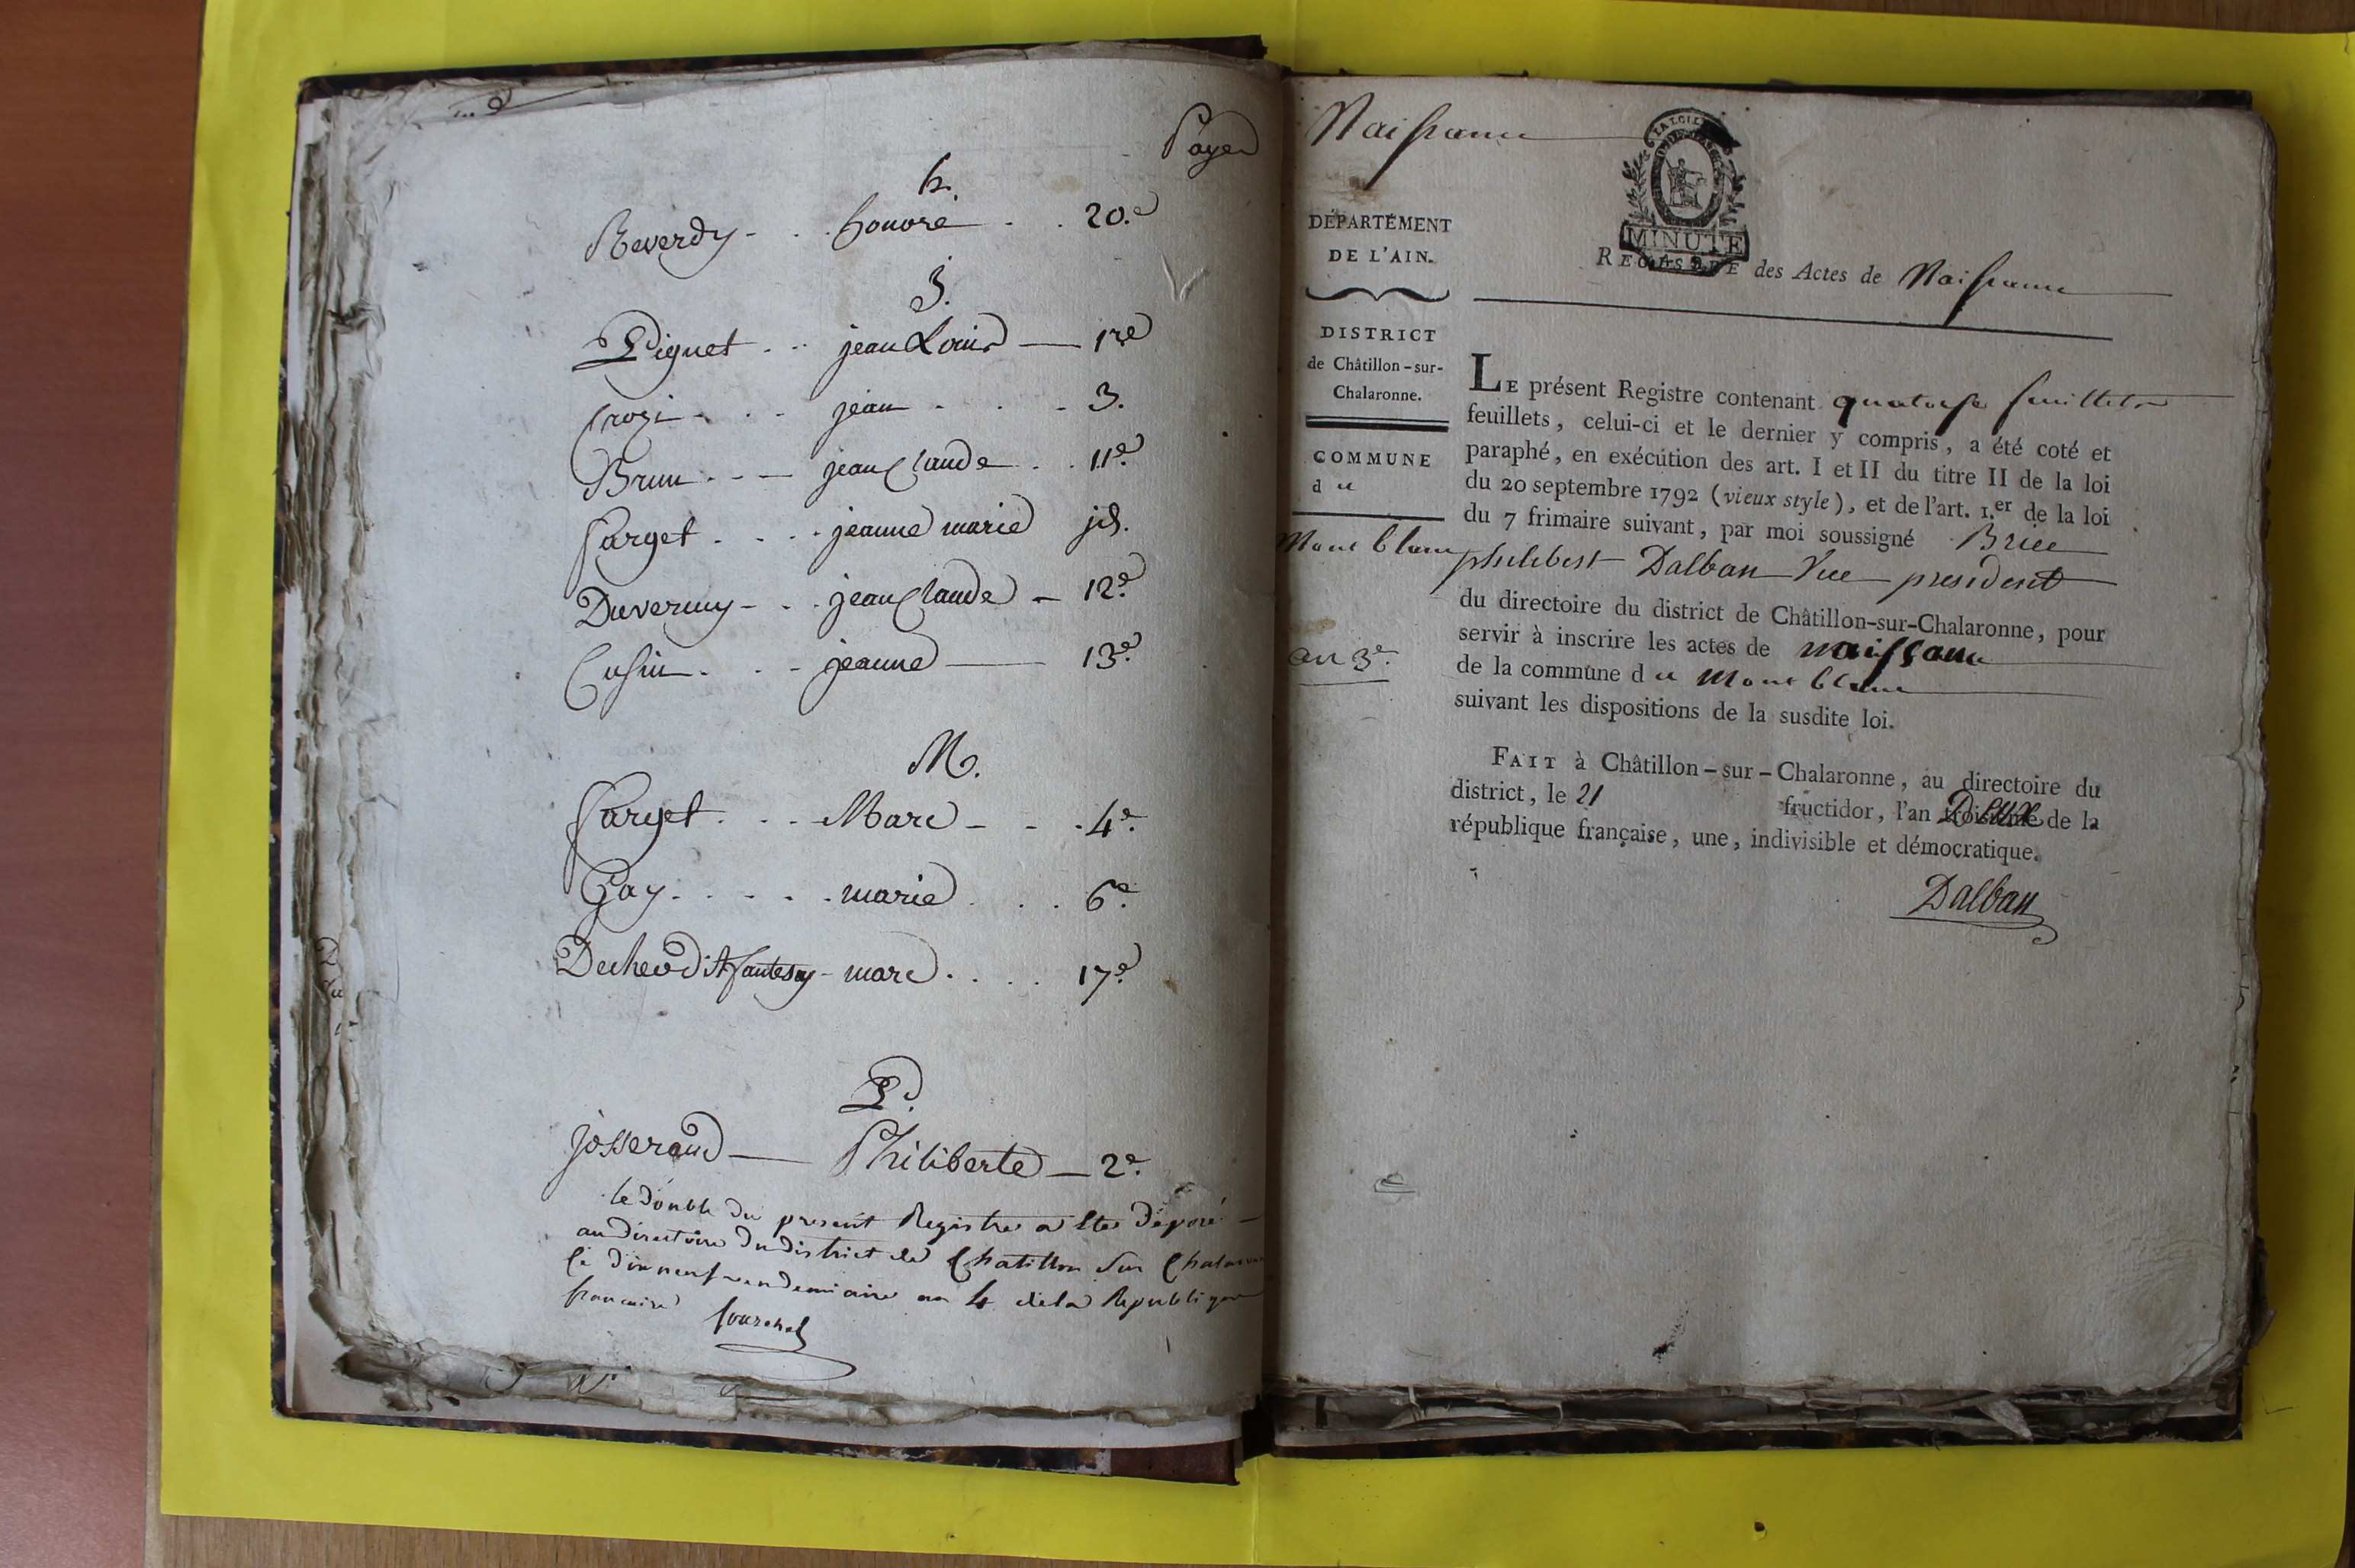 Pages
h.
Reverdy - . . honoré . . 20.e
J.
Piguet . . . jean Louis — 1re
Crozi - . . - jean - . . - 3.
Brun . - — jean Claude . . 11.e
farget . . . . jeanne marie jd.
Duvernay - . . jean Claude — 12.e
Cusin . . . - jeanne — 13.e
M.
farget . . . - Marc - - . 4e.
Gay . . . . . marie . . . 6e.
marc . . . . 17.e
P.
josserand — Philiberte — 2e.
le double du present Registre a Ete déposé
au directoire du district de Chatillon Sur
Ce dix neuf vendemiaire an 4 de la Republique
francaise
Naissance
LA LOI
MINUTE
DÉPARTEMENT
DE L'AIN.
REGISTRE des Actes de Naissance
DISTRICT
de Châtillon-sur-
Chalaronne.
COMMUNE
d u
Mont blanc
an 3e.
LE présent Registre contenant quatorse feuillets
feuillets, celui-ci et le dernier y compris, a été coté et
paraphé, en exécution des art. I et II du titre II de la loi
du 20 septembre 1792 (vieux style), et de l'art. 1.er de la loi
du 7 frimaire suivant, par moi soussigné Brice
philibert Dalban Vice president
du directoire du district de Châtillon-sur-Chalaronne, pour
servir à inscrire les actes de naissance
de la commune d u Mont blanc
suivant les dispositions de la susdite loi.
FAIT à Châtillon-sur-Chalaronne, au directoire du
district, le 21 fructidor, l'an Deux de la
république française, une, indivisible et démocratique.
Dalban